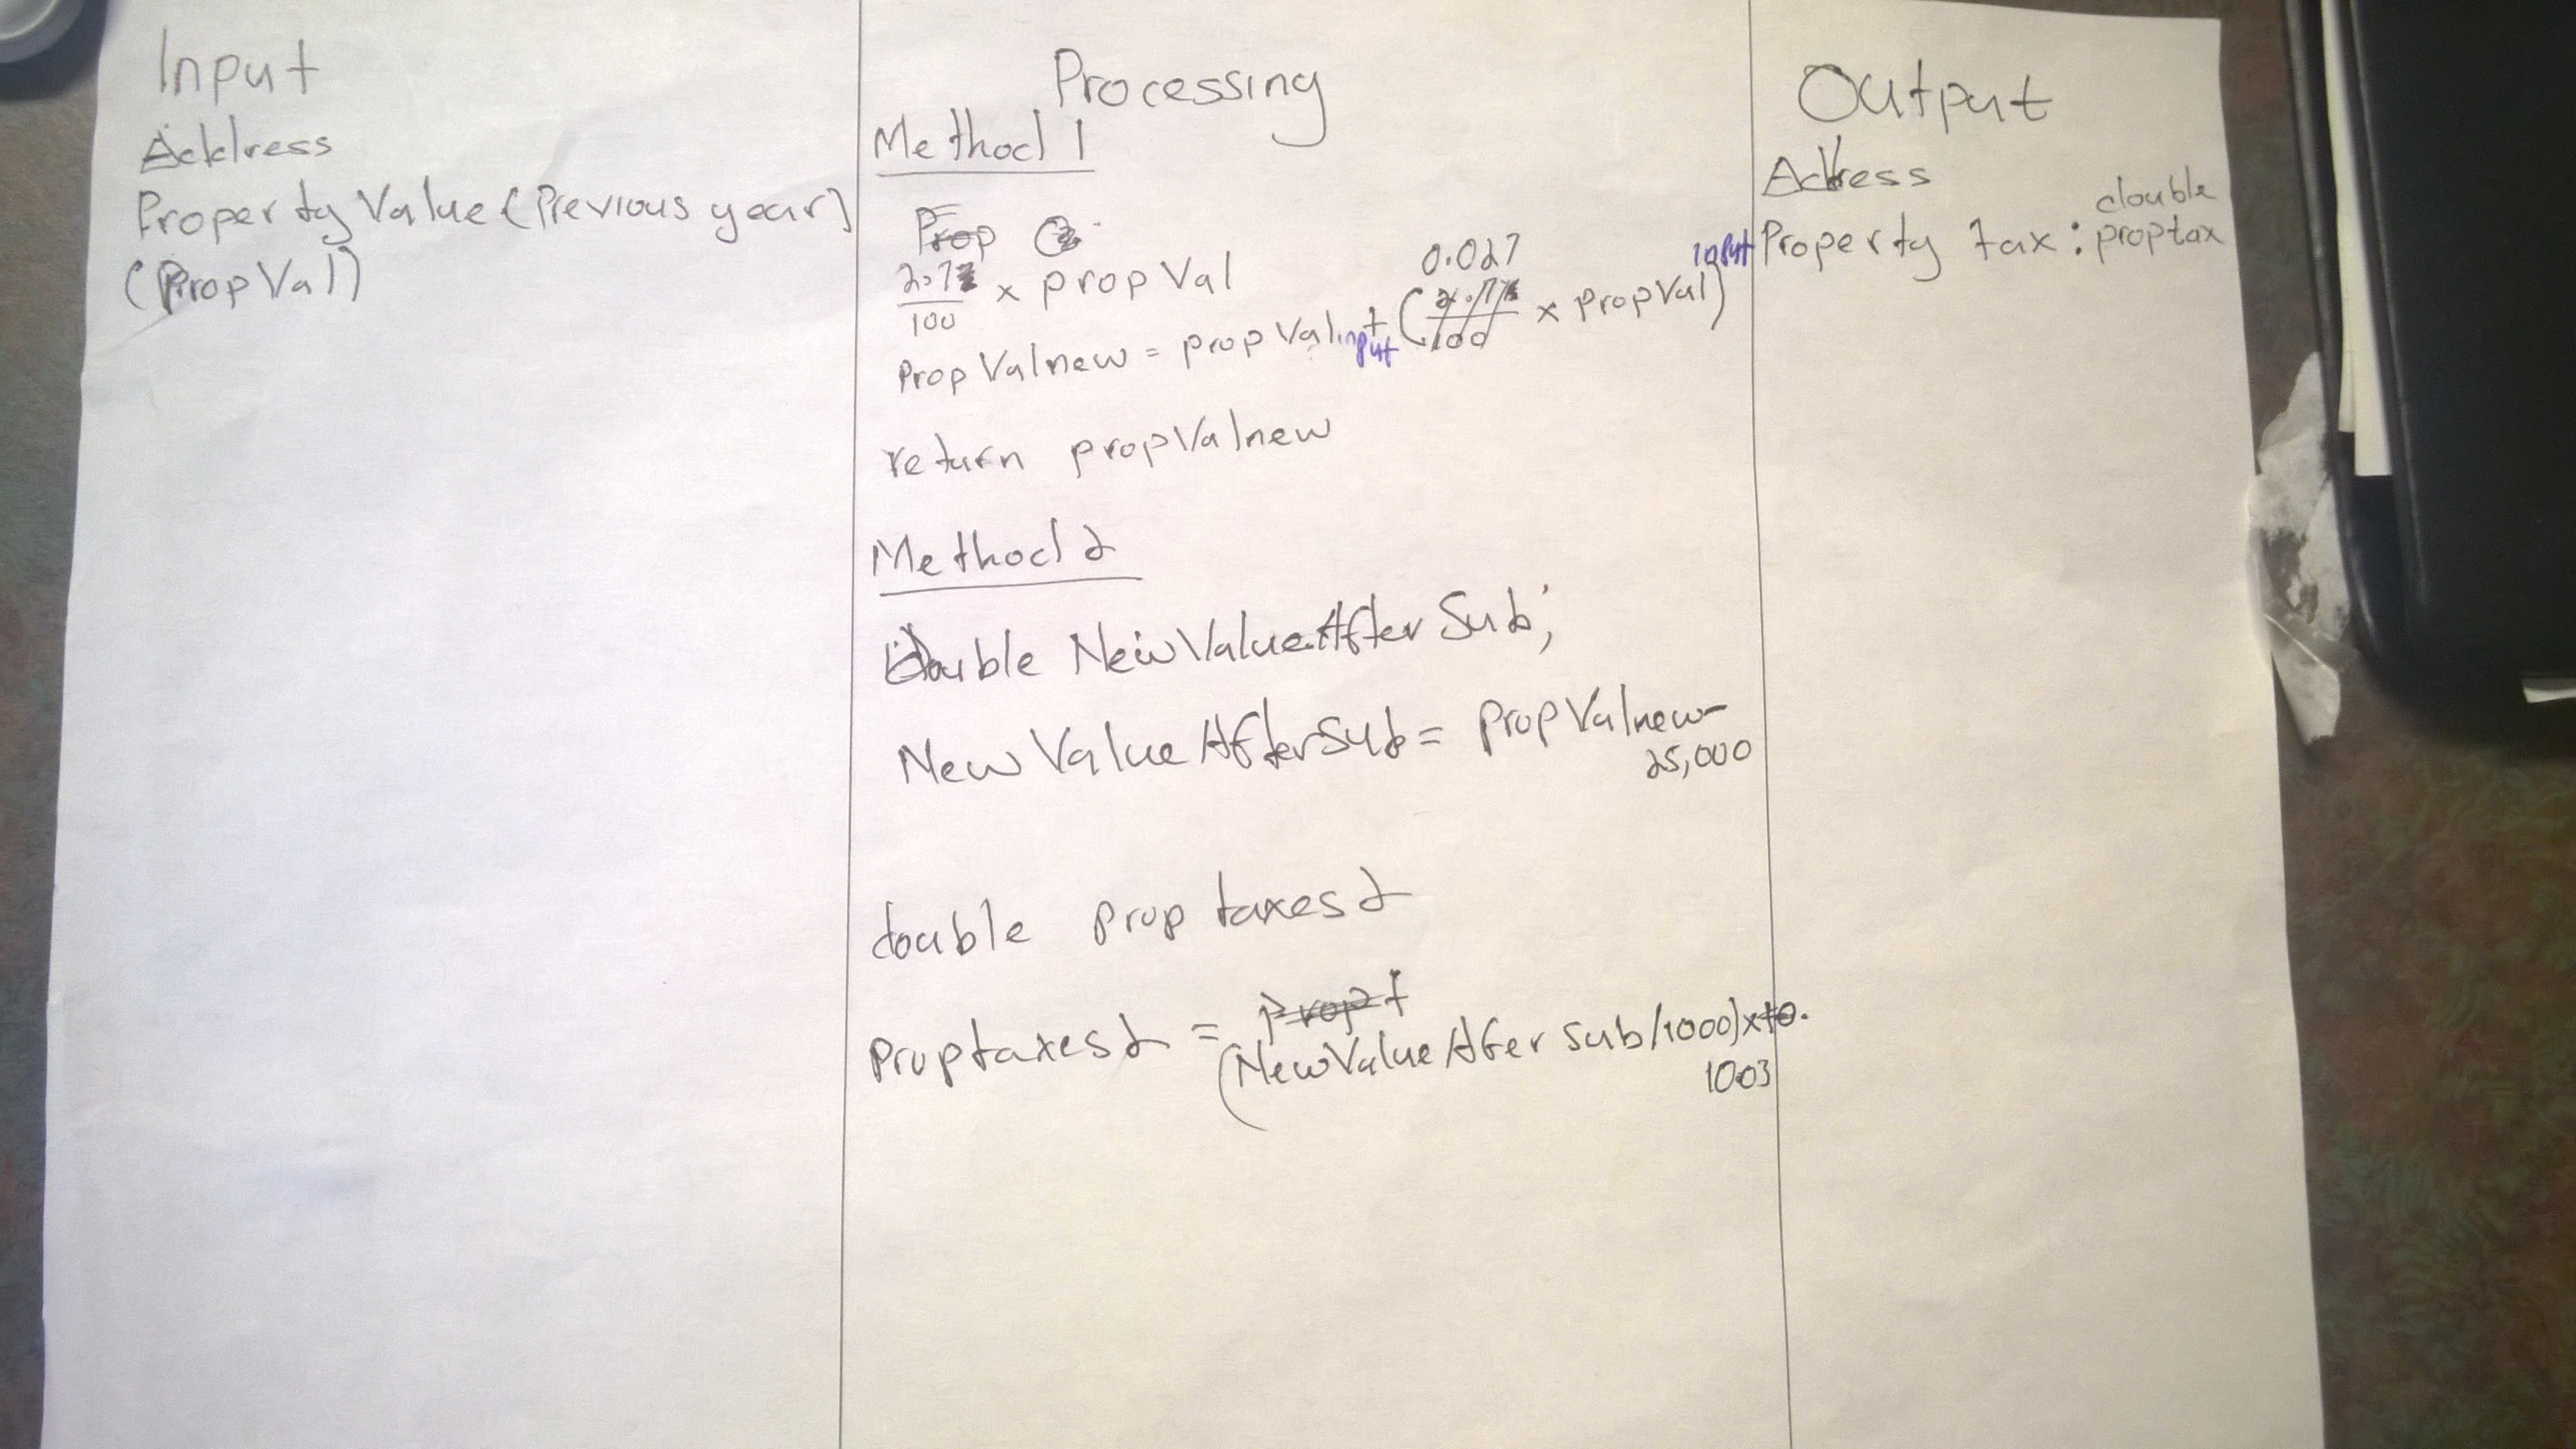 Input
Address
Property Value (Previous year)
(PropVal)
Processing
Method 1
Prop
2.7 x propVal
100
0.027
PropValnew = propValinput + (2.7 x PropVal) input
100
return propValnew
Method 2
Double NewValueAfterSub;
NewValueAfterSub = PropValnew-
25,000
double proptaxes2
proptaxes2 = Propt
(NewValueAfterSub/1000)x10.
10.03
Output
Adress
double
Property tax: proptax